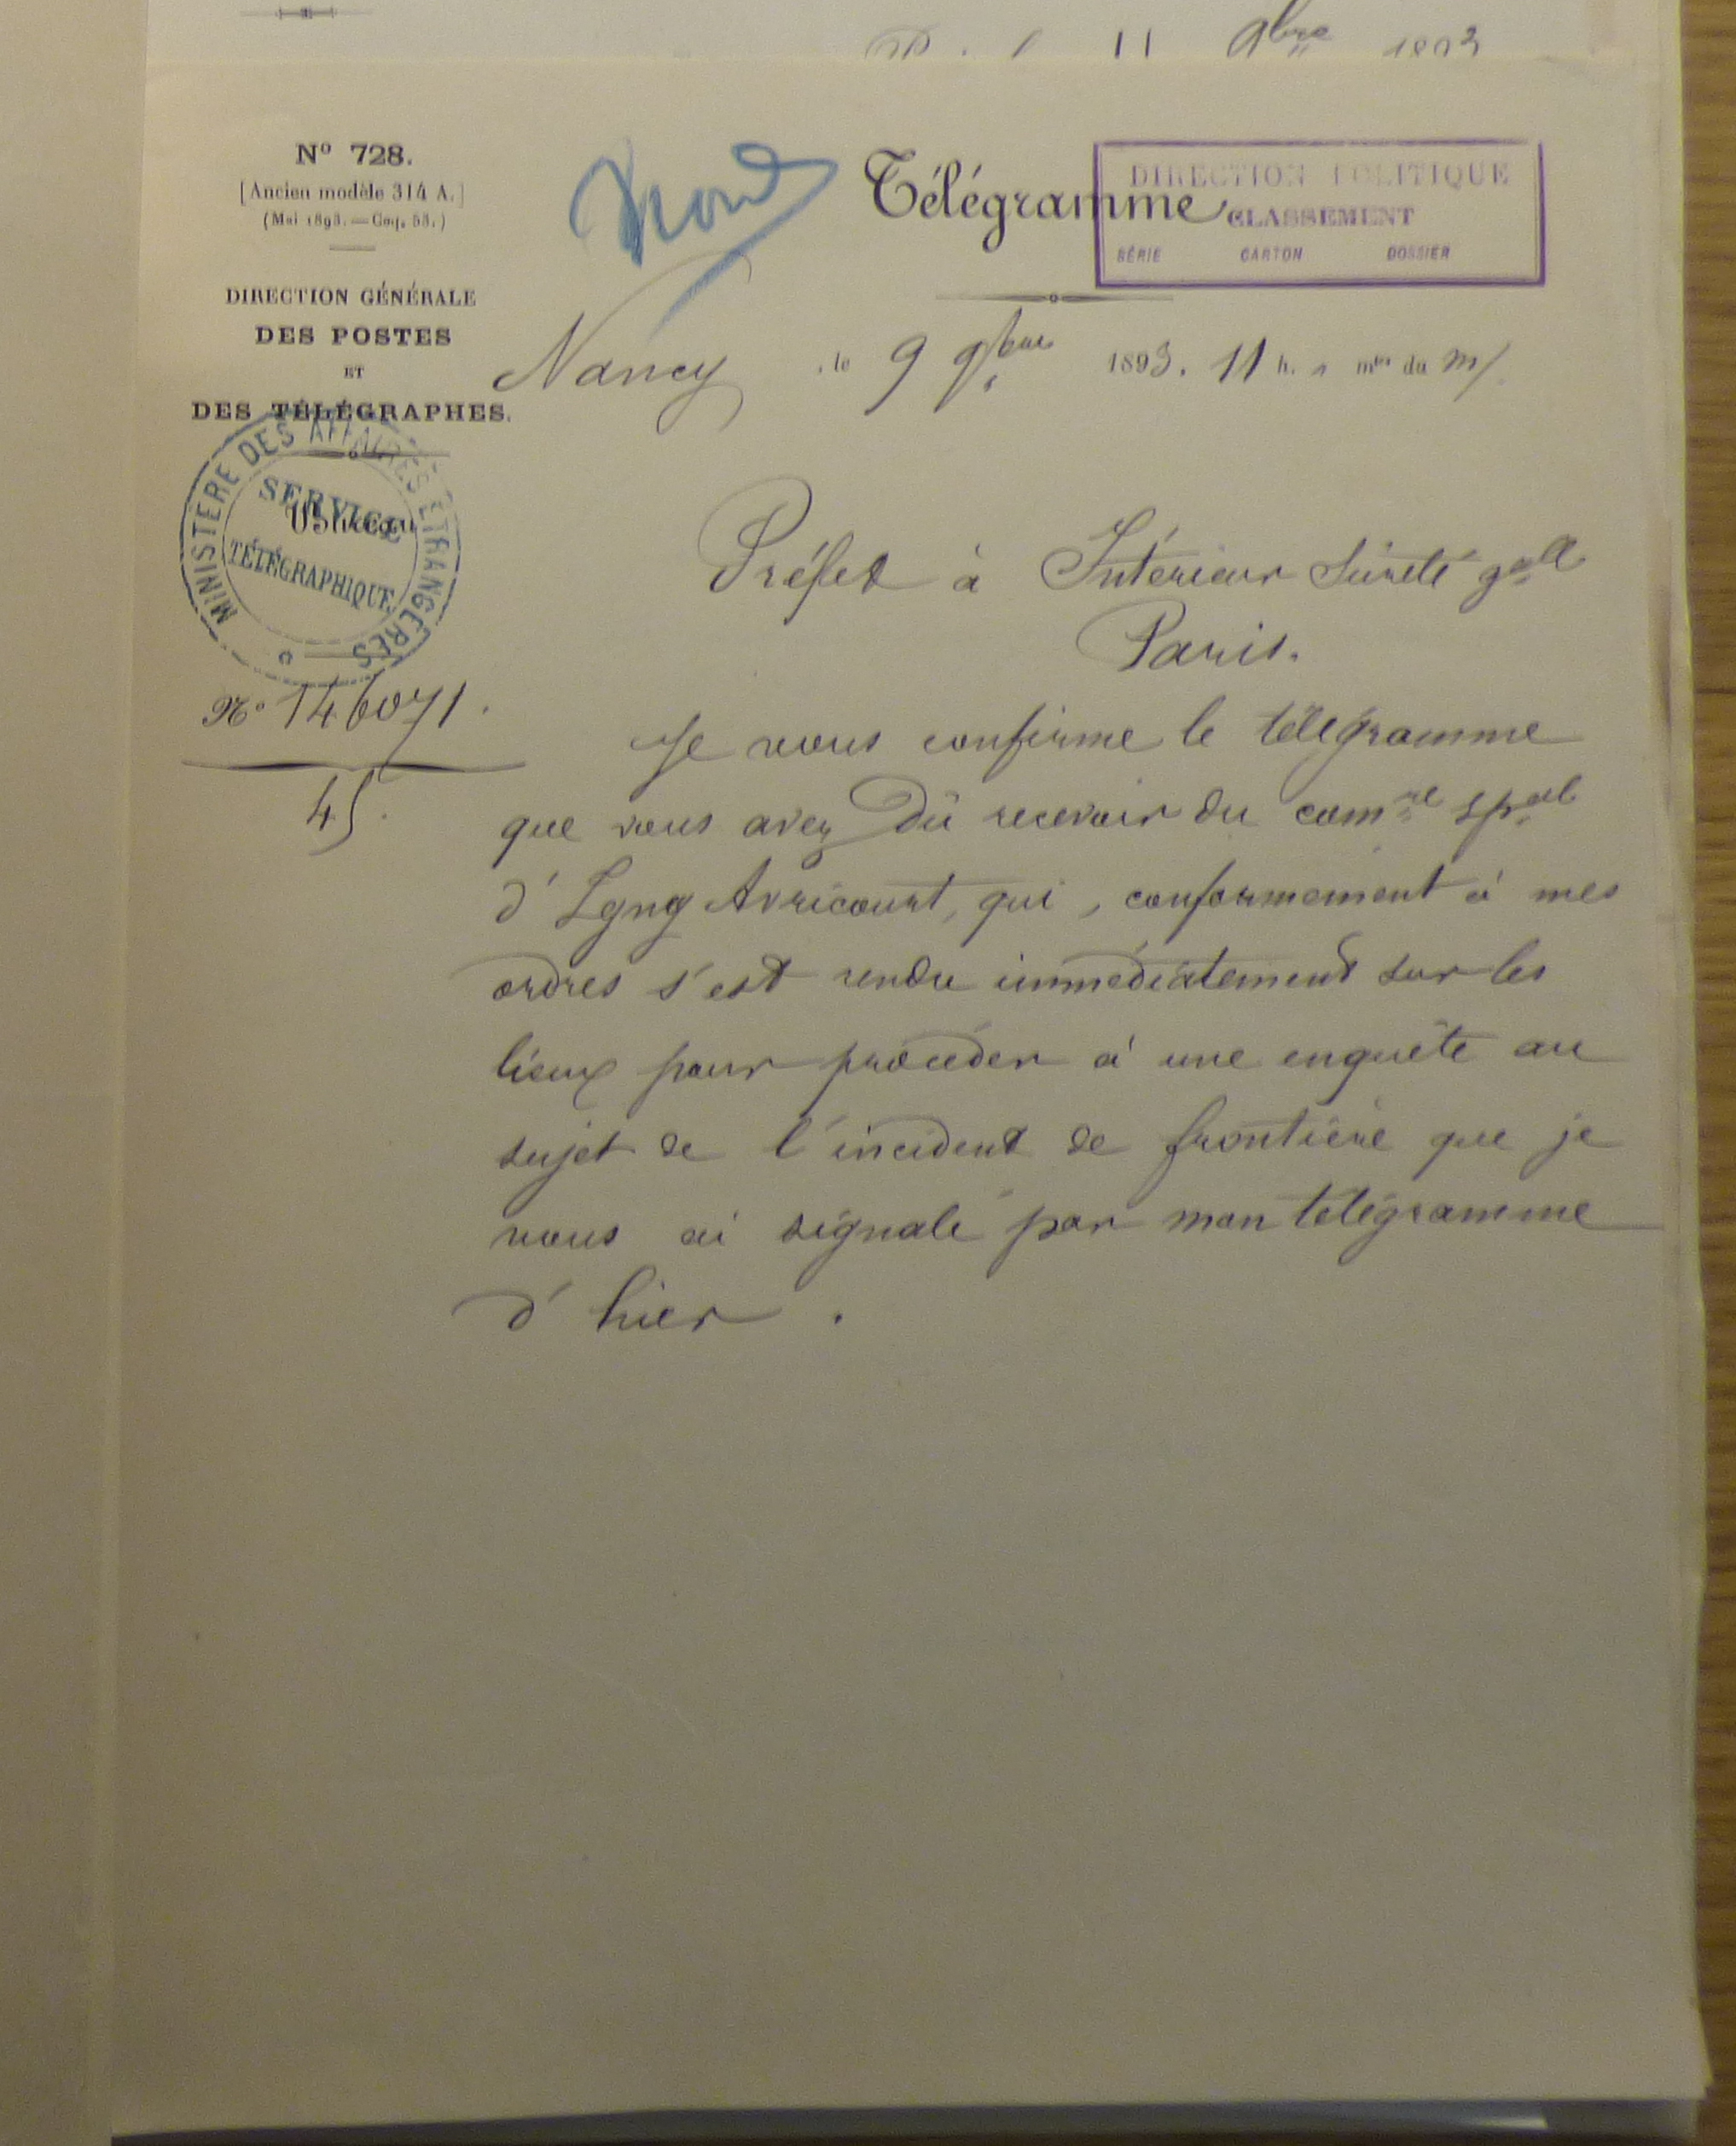 11 9bre 1893
N° 728.
[Ancien modèle 314 A.]
(Mai 1893. — Coq. 53.)
DIRECTION GÉNÉRALE
DES POSTES
ET
DES TÉLÉGRAPHES.
MINISTERE DES AFFAIRES ETRANGERES
SERVICE
TÉLÉGRAPHIQUE
N° 146071.
45.
Nord
Télégramme
DIRECTION POLITIQUE
CLASSEMENT
SÉRIE CARTON DOSSIER
Nancy, le 9 9bre 1893. 11 h. mes du m/.
Préfet à Intérieur Sûreté gale
Paris.
Je vous confirme le télégramme
que vous avez dû recevoir du comre spal
d'Igny Avricourt, qui, conformement à mes
ordres s'est rendu immédiatement sur les
lieux pour procéder à une enquête au
sujet de l'incident de frontière que je
vous ai signalé par mon télégramme
d'hier.